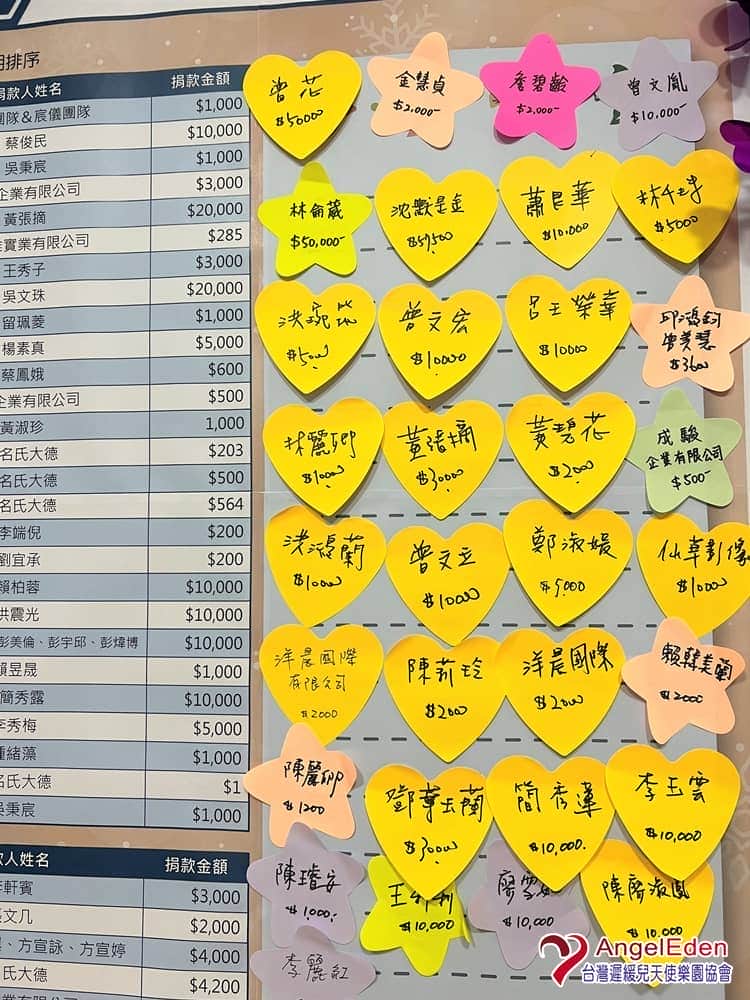 排序
捐款人姓名 捐款金額
團隊＆宸儀團隊 $1,000
蔡俊民 $10,000
吳秉宸 $1,000
企業有限公司 $3,000
黃張摘 $20,000
實業有限公司 $285
王秀子 $3,000
吳文珠 $20,000
留珮菱 $1,000
楊素真 $5,000
蔡鳳娥 $600
企業有限公司 $500
黃淑珍 1,000
名氏大德 $203
名氏大德 $500
名氏大德 $564
李端倪 $200
劉宜承 $200
賴柏蓉 $10,000
洪震光 $10,000
彭美倫、彭宇邱、彭煒博 $10,000
賴昱晟 $1,000
簡秀露 $10,000
李秀梅 $5,000
鍾緒藻 $1,000
名氏大德 $1
吳秉宸 $1,000
款人姓名 捐款金額
軒賓 $3,000
文几 $2,000
、方宣詠、方宣婷 $4,000
氏大德 $4,200
曾花
$50000
金慧貞
$2,000-
詹碧齡
$2,000-
曾文胤
$10,000-
林侖葳
$50,000-
沈默是金
$59,500
蕭巨華
$10,000
$5000
洪琬
曾文宏
$10000
呂王榮華
$10000
邱鴻鈞
曾美慧
$3600
林麗卿
$10000
黃張摘
$30000
黃碧花
$2000
成駿
企業有限公司
$500-
洪淑蘭
$10000
曾文立
$10000
鄭淑媛
$9,000
仙草影像
$10000
洋晨國際
有限公司
$2000
陳莉玲
$2000
洋晨國際
$2000
賴韓美蘭
$2000
陳麗卿
$1200
鄧華玉蘭
$3000
簡秀蓮
$10,000.
李玉雲
$10,000
陳璿安
$1,000.
$10,000
廖雪
$10,000
陳廖淑鳳
$10,000
李麗紅
AngelEden
台灣遲緩兒天使樂園協會